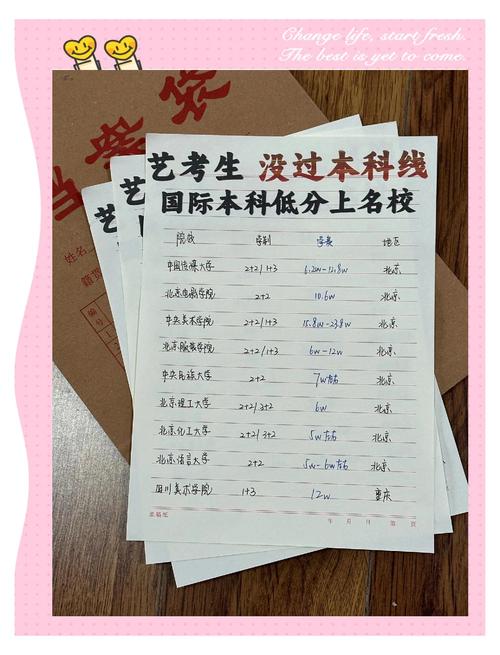 Change life, start fresh.
The best is yet to come.
艺考生 没过本科线
国际本科低分上名校
院校 学制 学费 地区
中国传媒大学 2+2/1+3 6.2w-12.8w 北京
北京电影学院 2+2 10.6w 北京
中央美术学院 2+2/1+3 15.8w-23.8w 北京
北京服装学院 2+2/1+3 6w-12w 北京
中央民族大学 2+2 7w左右 北京
北京理工大学 2+2/3+2 6w 北京
北京化工大学 2+2/3+2 5w左右 北京
北京语言大学 2+2 5w-6w左右 北京
四川美术学院 1+3 12w 重庆
年 月 日 第 页
档案袋
艺
艺
姓名
籍贯
编号